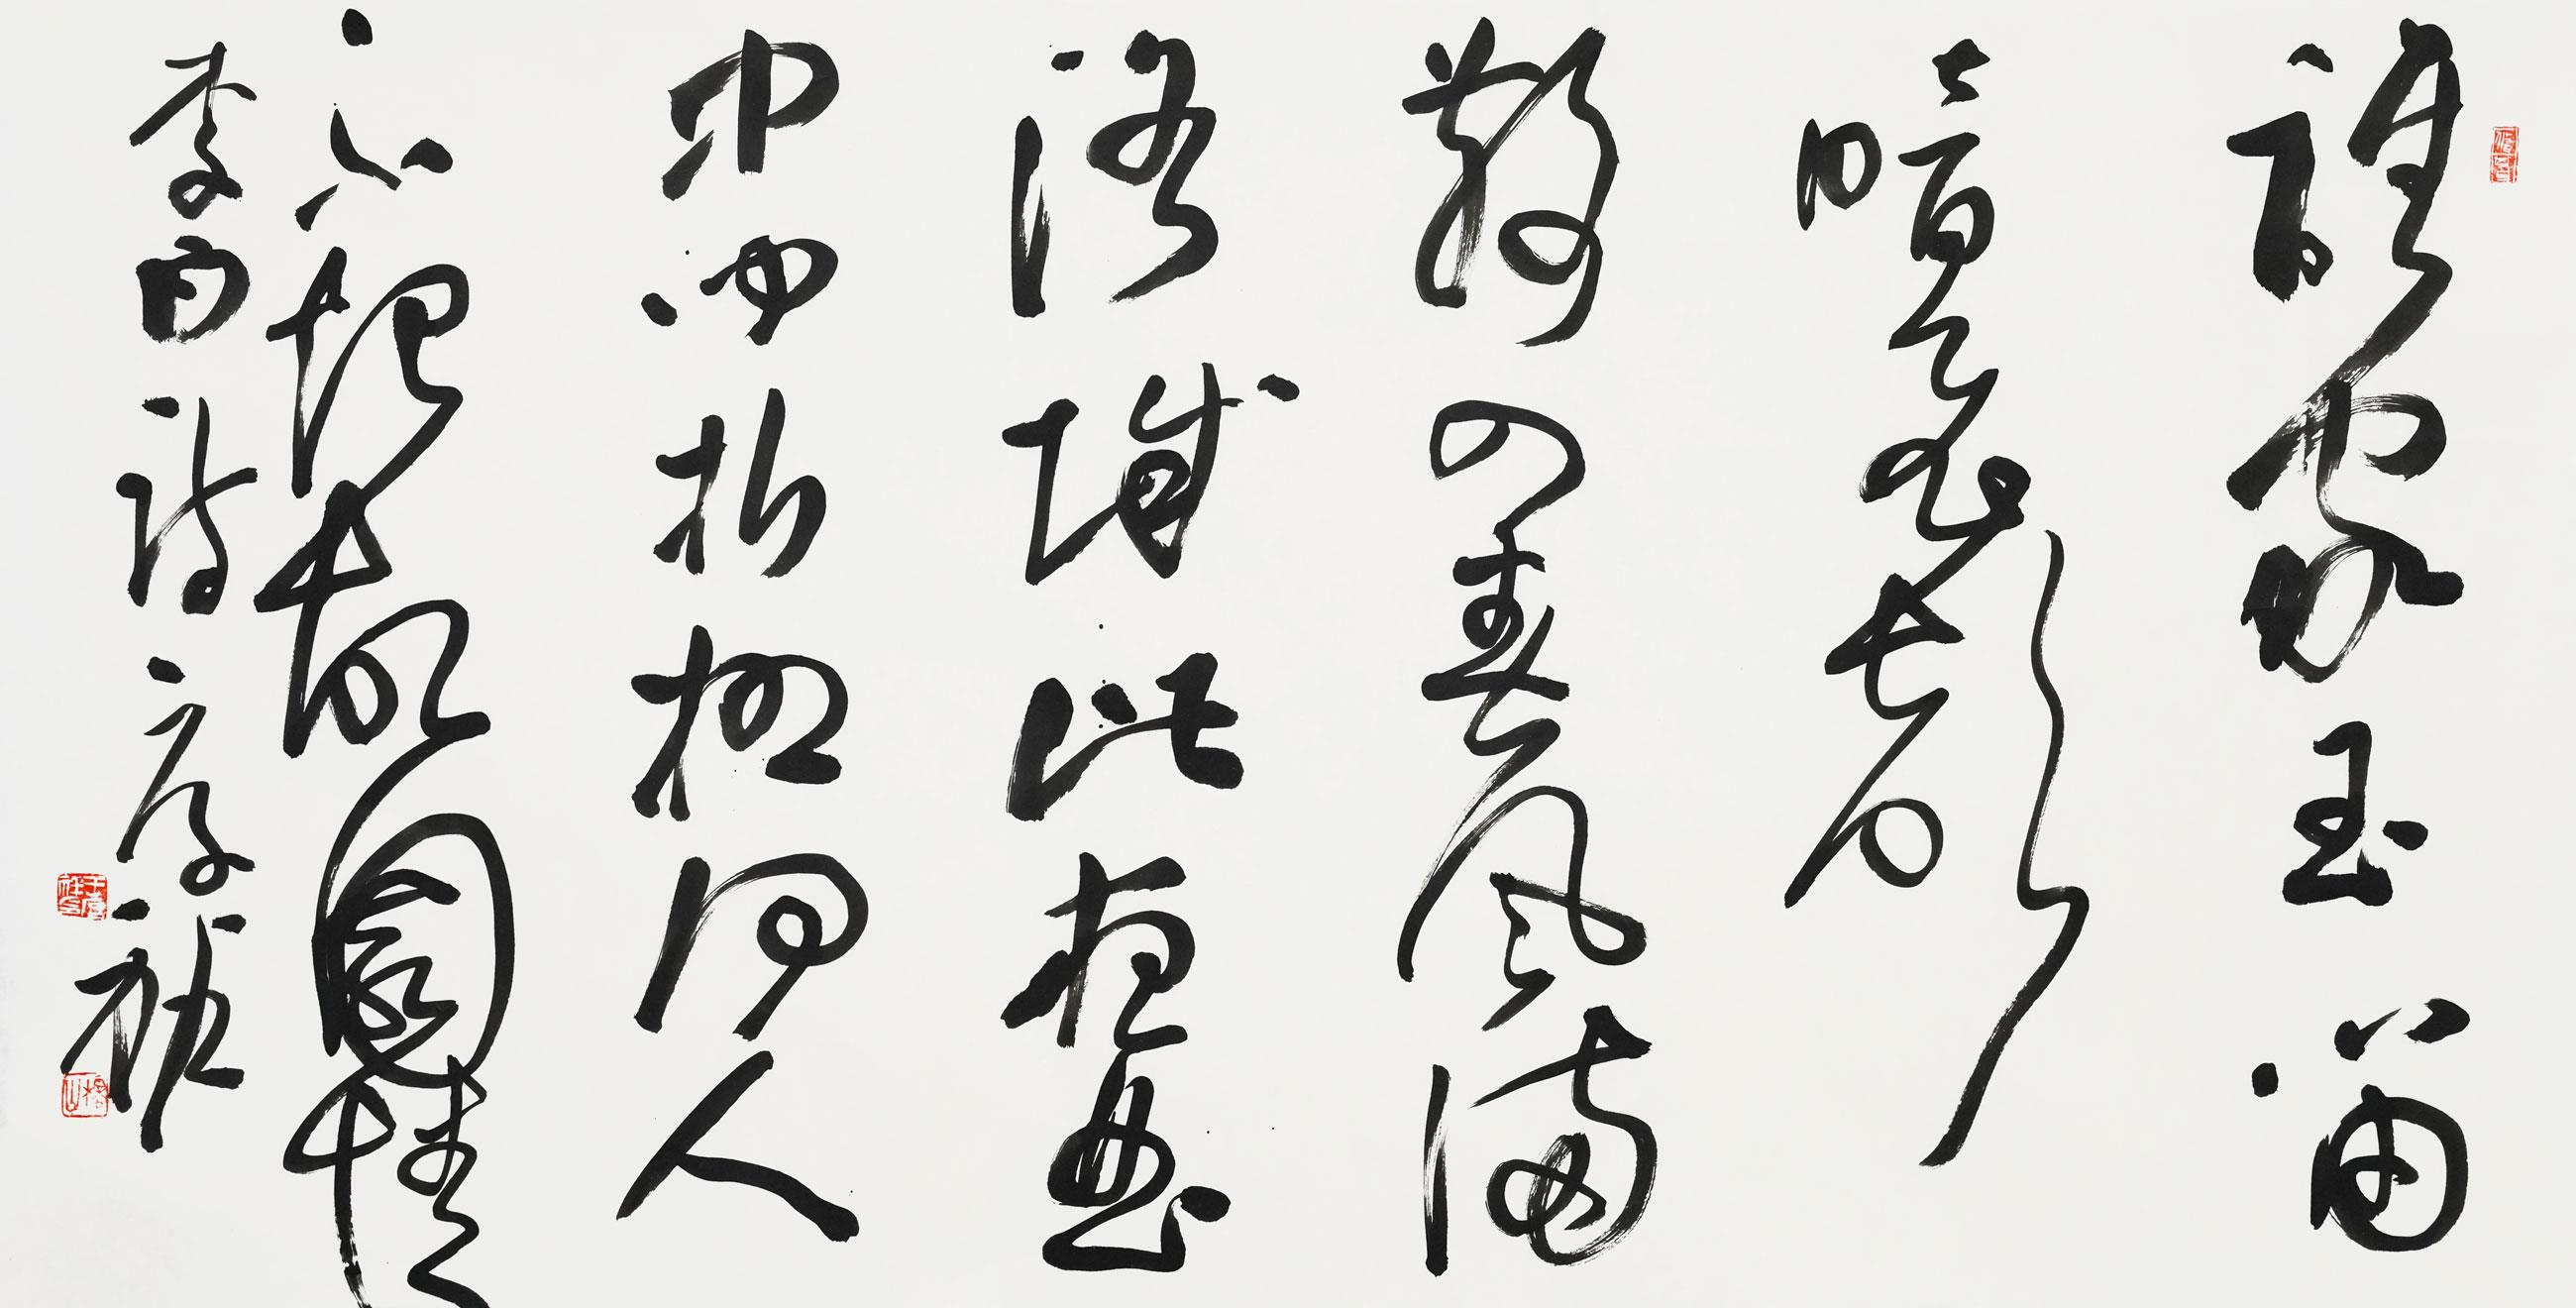 誰家玉笛
暗飛聲
散入春風滿
洛城此夜曲
中聞折柳何人
不起故園情
李白詩